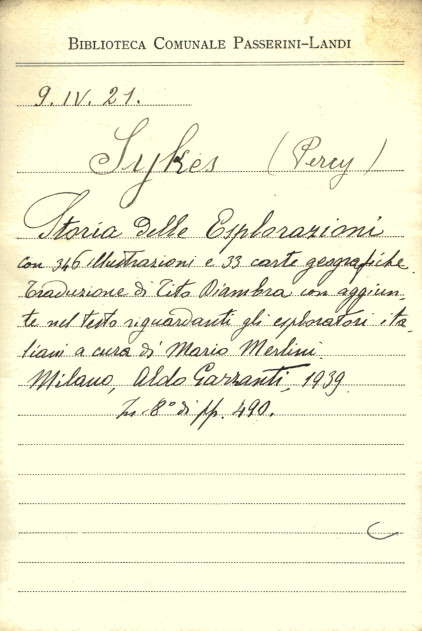 BIBLIOTECA COMUNALE PASSERINI-LANDI
9. IV. 21.
Sykes (Percy)
Storia delle Esplorazioni
con 346 illustrazioni e 33 carte geografiche.
Traduzione di Tito Diambra con aggiun-
te nel testo riguardanti gli esploratori ita-
liani a cura di Mario Merlini.
Milano, Aldo Garzanti, 1939.
In-8° di pp. 490.